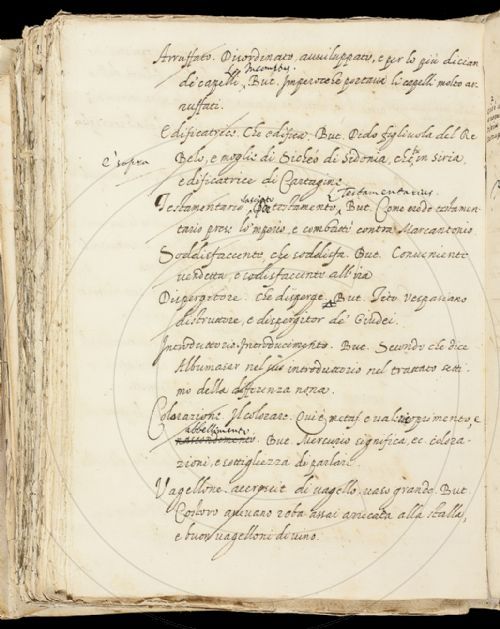 Arruffato. Disordinato, avviluppato, e per lo più dicesi
de' capelli. Lat. Incomptus. But. Imperochè portava li capelli molto ar-
ruffati.
Edificatrice. Che edifica. But. Dido figliuola del Re
è sopra
Belo, e moglie di Sicheo di Sidonia, che fu in Siria,
edificatrice di Cartagine.
Testamentario. lasciato testamento. Testamentarius. But. Come erede testamen-
tario prese lo 'mperio, e combatté contra Marcantonio
Soddisfaccente, che soddisfa. But. Conveniente
vendetta, e sodisfaccente all'ira
Dispergitore. Che disperge. But. Tito Vespasiano
distruttore, e dispergitor de' Giudei.
Introduttorio. Introducimento. But. Secondo che dice
Albumasar nel suo introduttorio nel trattato setti-
mo della differenza nona.
Colorazione. Il colorare. Qui è metaf. e vale, e
abbellimento
But. Mercurio significa, ec. colora-
zioni, e sottigliezza di parlare.
Vagellone. accrescit. di vagello, vaso grande. But.
Costoro avevano roba assai arrecata alla stalla,
e buon vagelloni di vino.